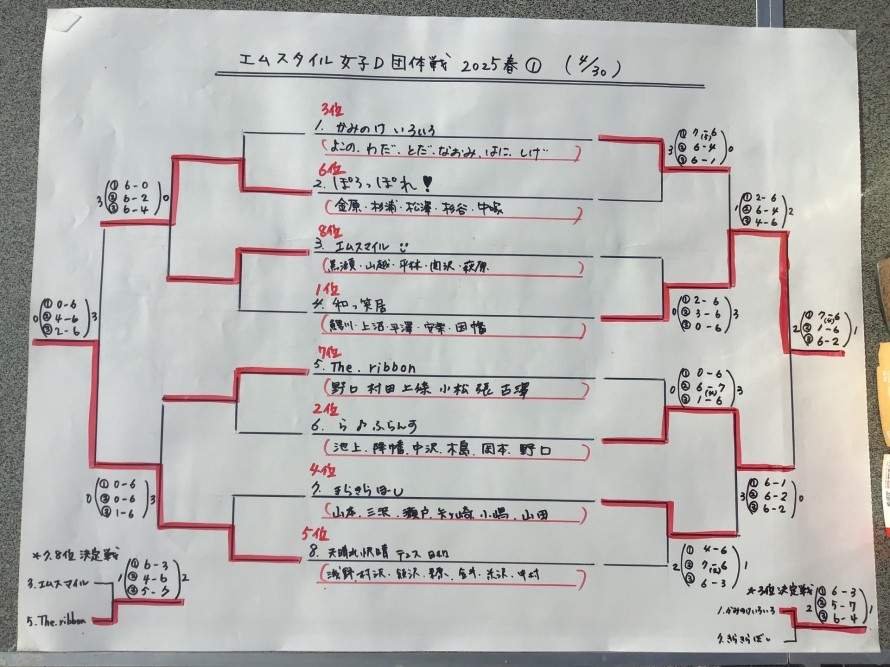 エムスタイル女子D団体戦 2025春① (4/30)
3位
1. かみのけ いろいろ
(よこの、わだ、とだ、なおみ、はに、しげ)
6位
2. ぽろっぽれ♥
(金原・杉浦・松澤・杉谷・中塚)
8位
3. エムスマイル
(黒瀬・山越・平林・関沢・萩原)
1位
4. 和っ家居
(鮎川・上沼・平澤・安葉・因幡)
7位
5. The. ribbon
(野口 村田 上條 小松 張 古澤)
2位
6. ら♪ふらんす
(池上、降幡、中沢、木島、岡本、野口)
4位
7. きらきらぼし
(山本、三沢、瀬戸、矢ヶ崎、小嶋、山田)
5位
8. テニス
村沢
3(① 6-0 ② 6-2 ③ 6-4)0
0(① 0-6 ② 4-6 ③ 2-6)3
0(① 0-6 ② 0-6 ③ 1-6)3
3(① 7-6 ② 6-4 ③ 6-1)0
1(① 2-6 ② 6-4 ③ 4-6)2
0(① 2-6 ② 3-6 ③ 0-6)3
2(① 7-6 ② 1-6 ③ 6-2)1
0(① 0-6 ② 6-7 ③ 1-6)3
3(① 6-1 ② 6-2 ③ 6-2)0
2(① 4-6 ② 7-6 ③ 6-3)1
*7.8位 決定戦
3. エムスマイル
5. The. ribbon
1(① 6-3 ② 4-6 ③ 5-7)2
*3位決定戦
1. かみのけいろいろ
7. きらきらぼし
2(① 6-3 ② 5-7 ③ 6-4)1